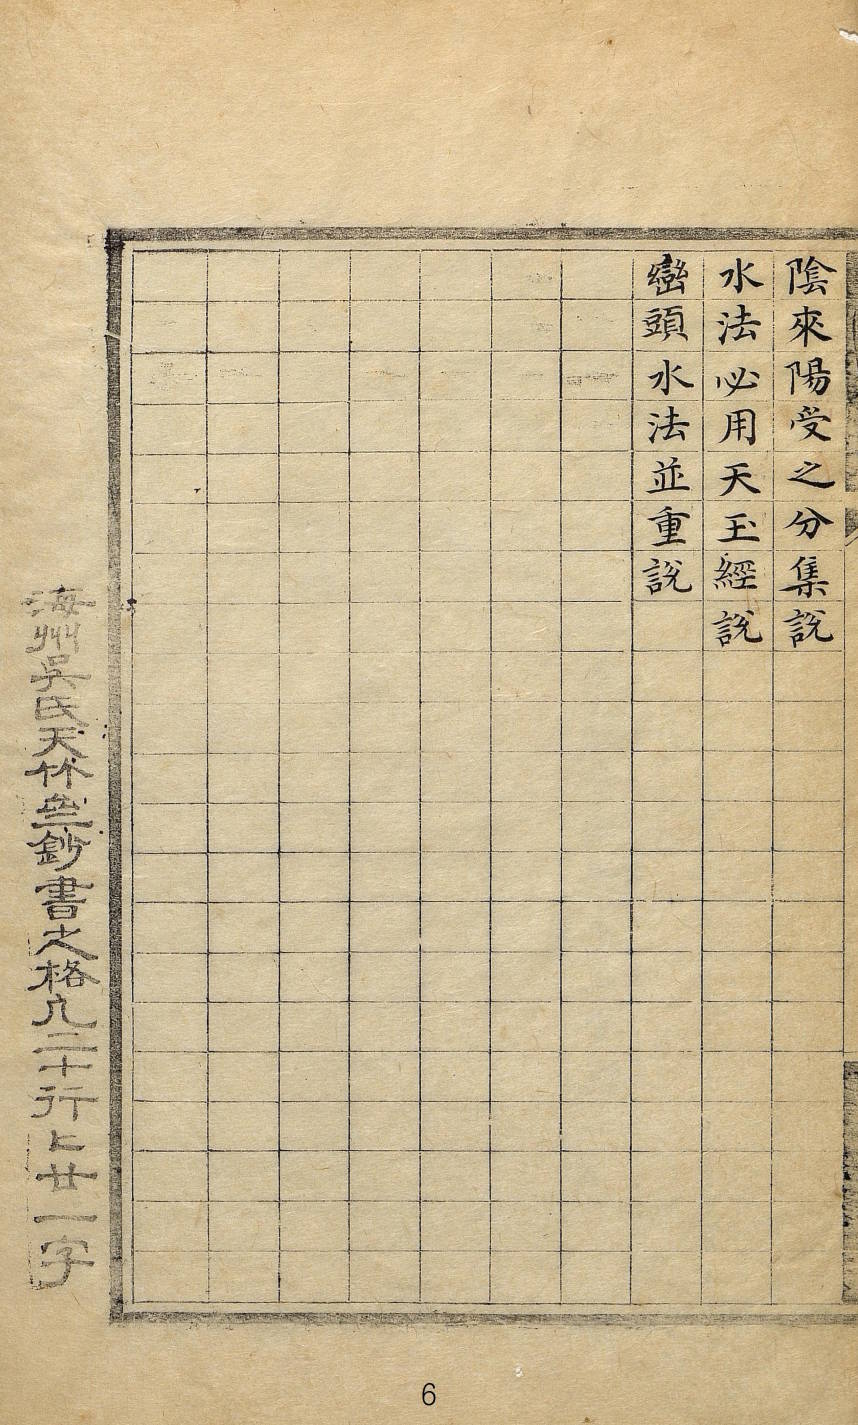 陰來陽受之分集說
水法必用天玉經說
巒頭水法並重說
海州吳氏天休堂鈔書之格凡二十行行廿一字
6